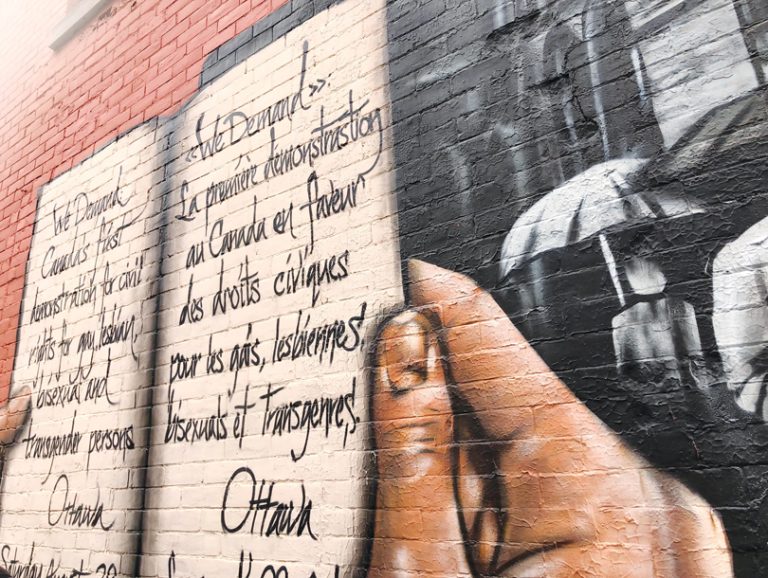 We Demand
Canada's first
demonstration for civil
rights for gay, lesbian,
bisexual and
transgender persons
Ottawa
Saturday August 28
«We Demand»:
La première démonstrastion
au Canada en faveur
des droits civiques
pour les gais, lesbiennes,
bisexuals et transgenres,
Ottawa